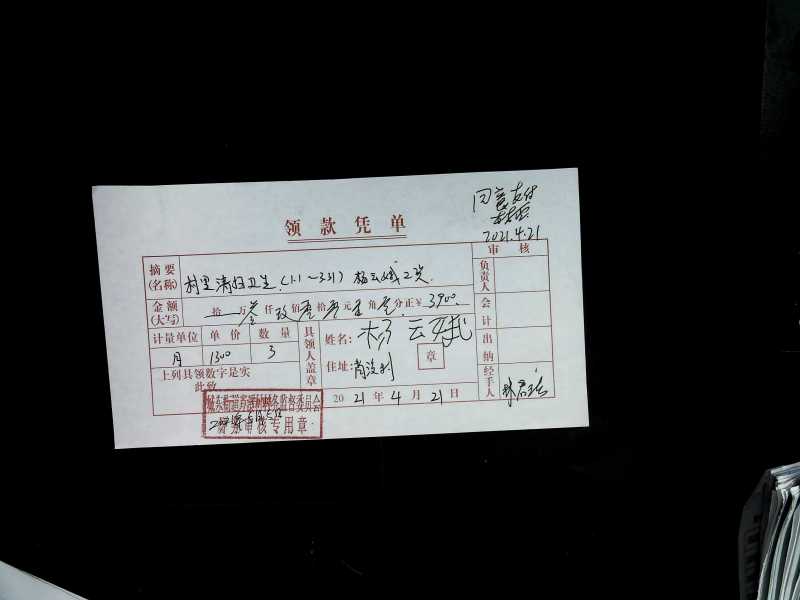 同意支付
2021.4.21
领款凭单
审核
摘要(名称) 村里清扫卫生(1.1~3.31) 杨云娥工资
负责人
金额(大写) 拾 万 叁 仟 玖 佰 零 拾 零 元 零 角 零 分 正 ¥ 3900.
会计
计量单位 单价 数量
具领人盖章
姓名: 杨云娥
出纳
月 1300 3
章
住址:
上列具领数字是实
此致
经手人
2021年4月21日
财务审核专用章